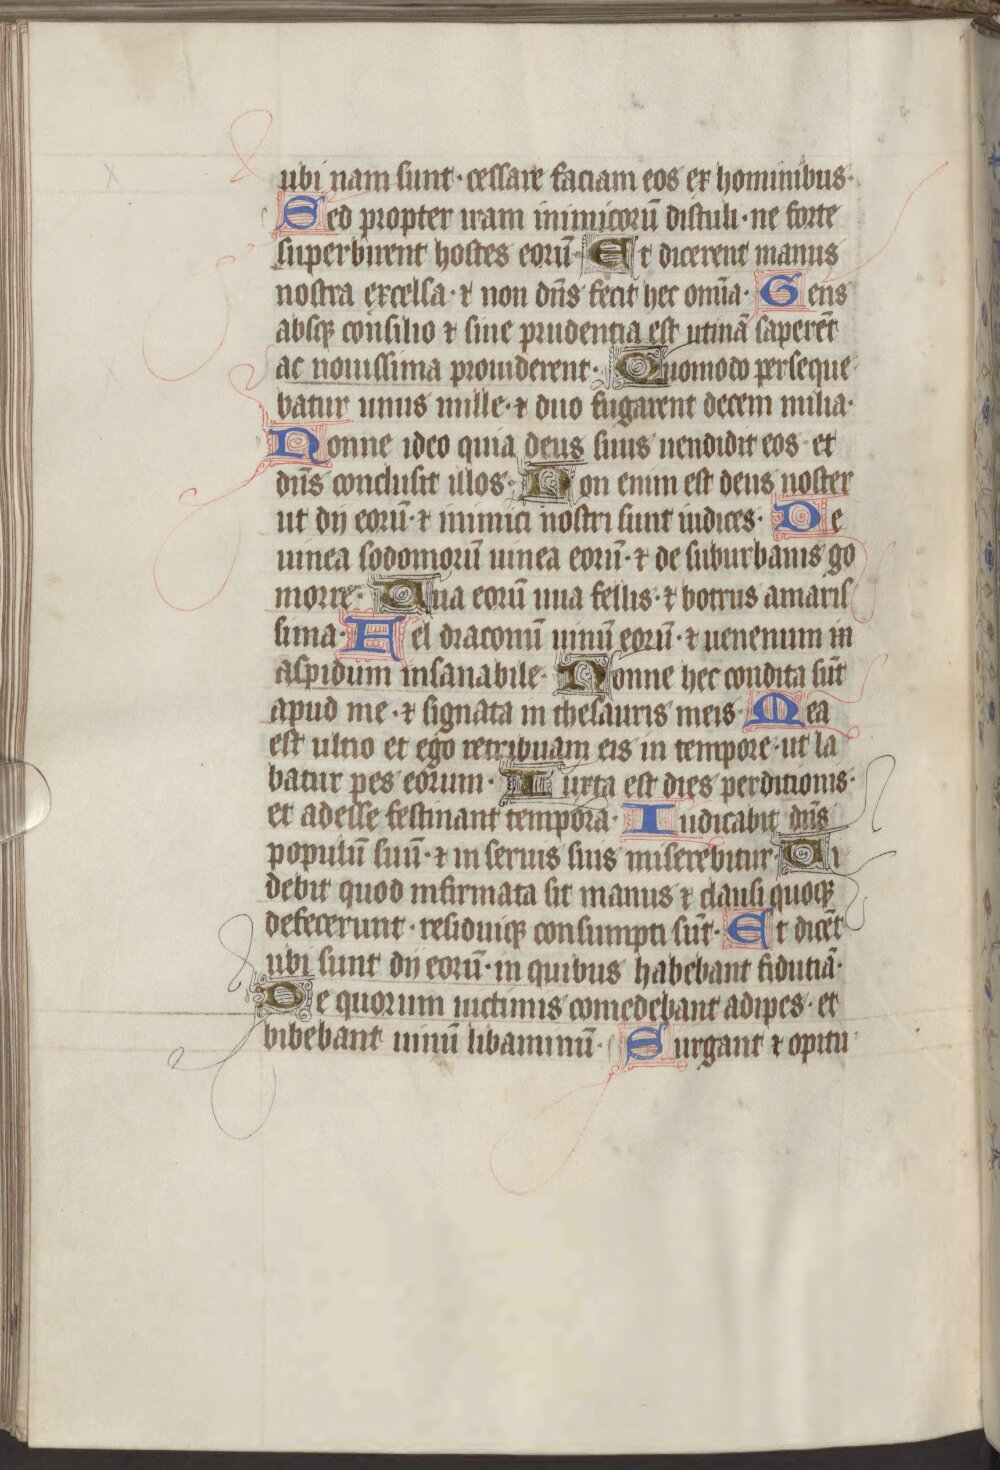 ubi nam sunt· cessare faciam eos ex hominibus·
Sed propter iram inimicorū distuli· ne forte
superbirent hostes eorū· Et dicerent manus
nostra excelsa· ⁊ non dn̄s fecit hec om̄ia· Gens
absqꝫ consilio ⁊ sine prudentia est utinā saperēt
ac nouissima prouiderent· Quomodo perseque
batur unus mille· ⁊ duo fugarent decem milia·
Nonne ideo quia deus suus uendidit eos et
dn̄s conclusit illos· Non enim est deus noster
ut dij eorū· ⁊ inimici nostri sunt iudices· De
uinea sodomorū uinea eorū· ⁊ de suburbanis go
morre· Uua eorū uua fellis· ⁊ botrus amaris
sima· Fel draconū uinū eorū· ⁊ uenenum in
aspidum insanabile· Nonne hec condita sūt
apud me· ⁊ signata in thesauris meis· Mea
est ultio et ego retribuam eis in tempore· ut la
batur pes eorum· Iuxta est dies perditionis·
et adesse festinant tempora· Iudicabit dn̄s
populū suū· ⁊ in seruis suis miserebitur· Ui
debit quod infirmata sit manus ⁊ clausi quoqꝫ
defecerunt· residuiqꝫ consumpti sūt· Et dicēt
ubi sunt dij eorū· in quibus habebant fidutiā·
De quorum uictimis comedebant adipes· et
bibebant uinū libaminū· Surgant ⁊ opitu